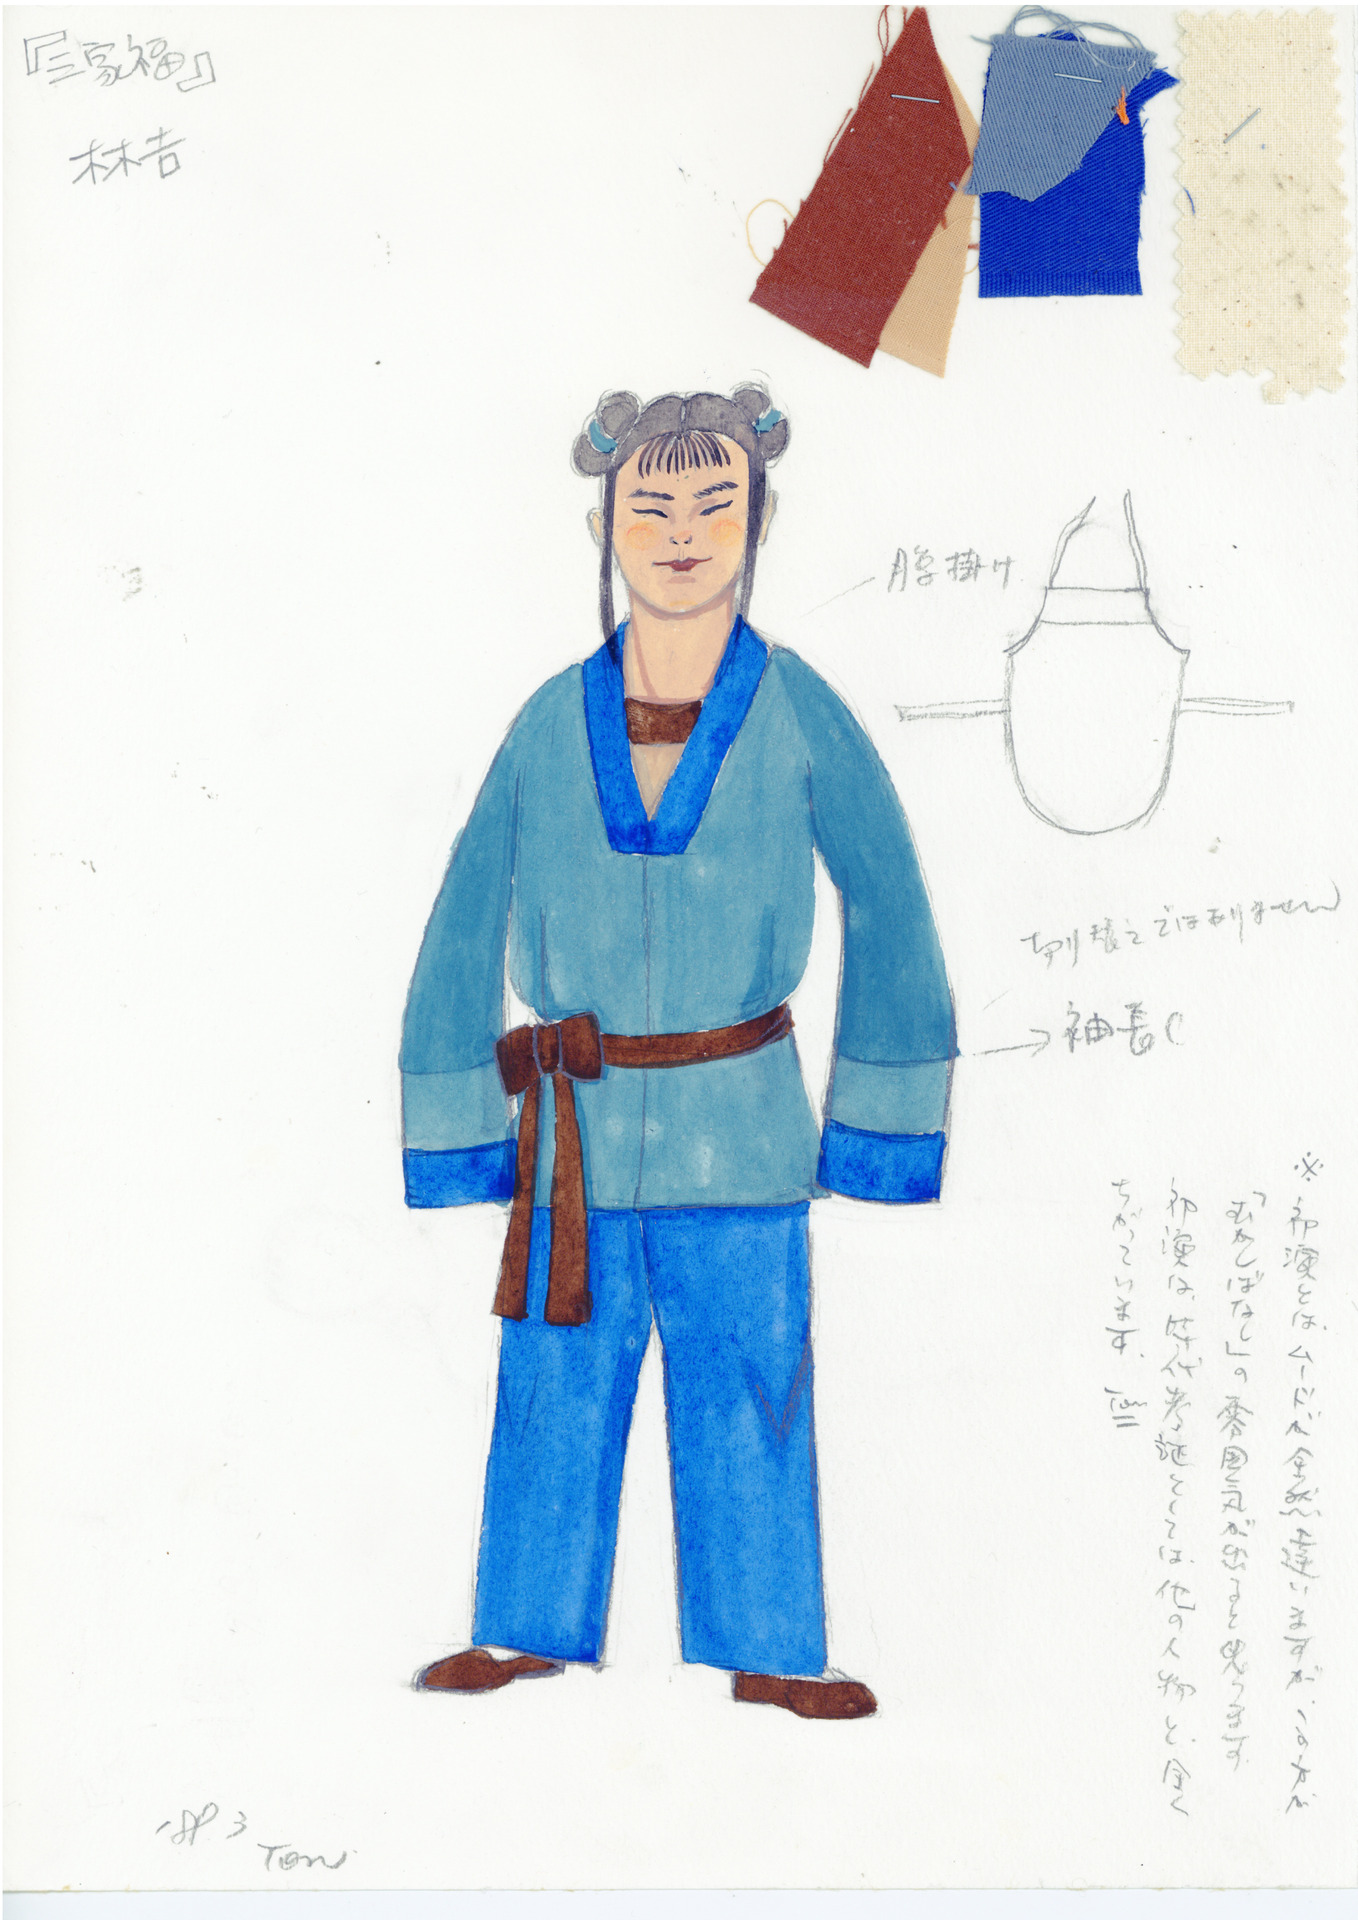 『三家福』
林吉
腹掛け
切り替えではありません
→袖長く
※ 初演とは、ムードが全然違いますが、この方が
「むかしばなし」の雰囲気が出ると思います
初演は、時代考証としては他の人物と、全く
ちがっています。
3
Toni